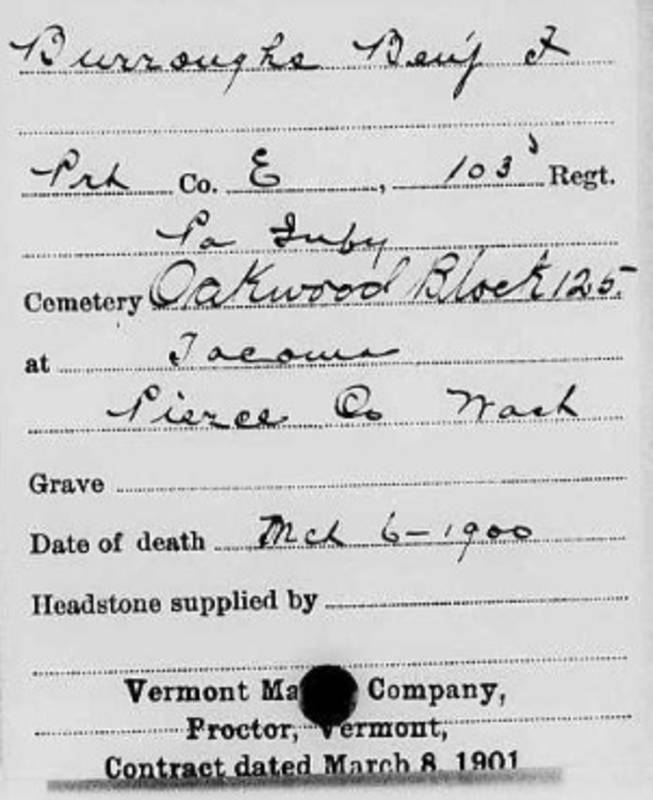 Burroughs Benj F
Prt Co. E, 103d Regt.
Pa Infy
Cemetery Oakwood Block 125.
at Tacoma
Pierce Co Wash
Grave
Date of death Mch 6-1900
Headstone supplied by
Vermont Ma Company,
Proctor, Vermont,
Contract dated March 8, 1901